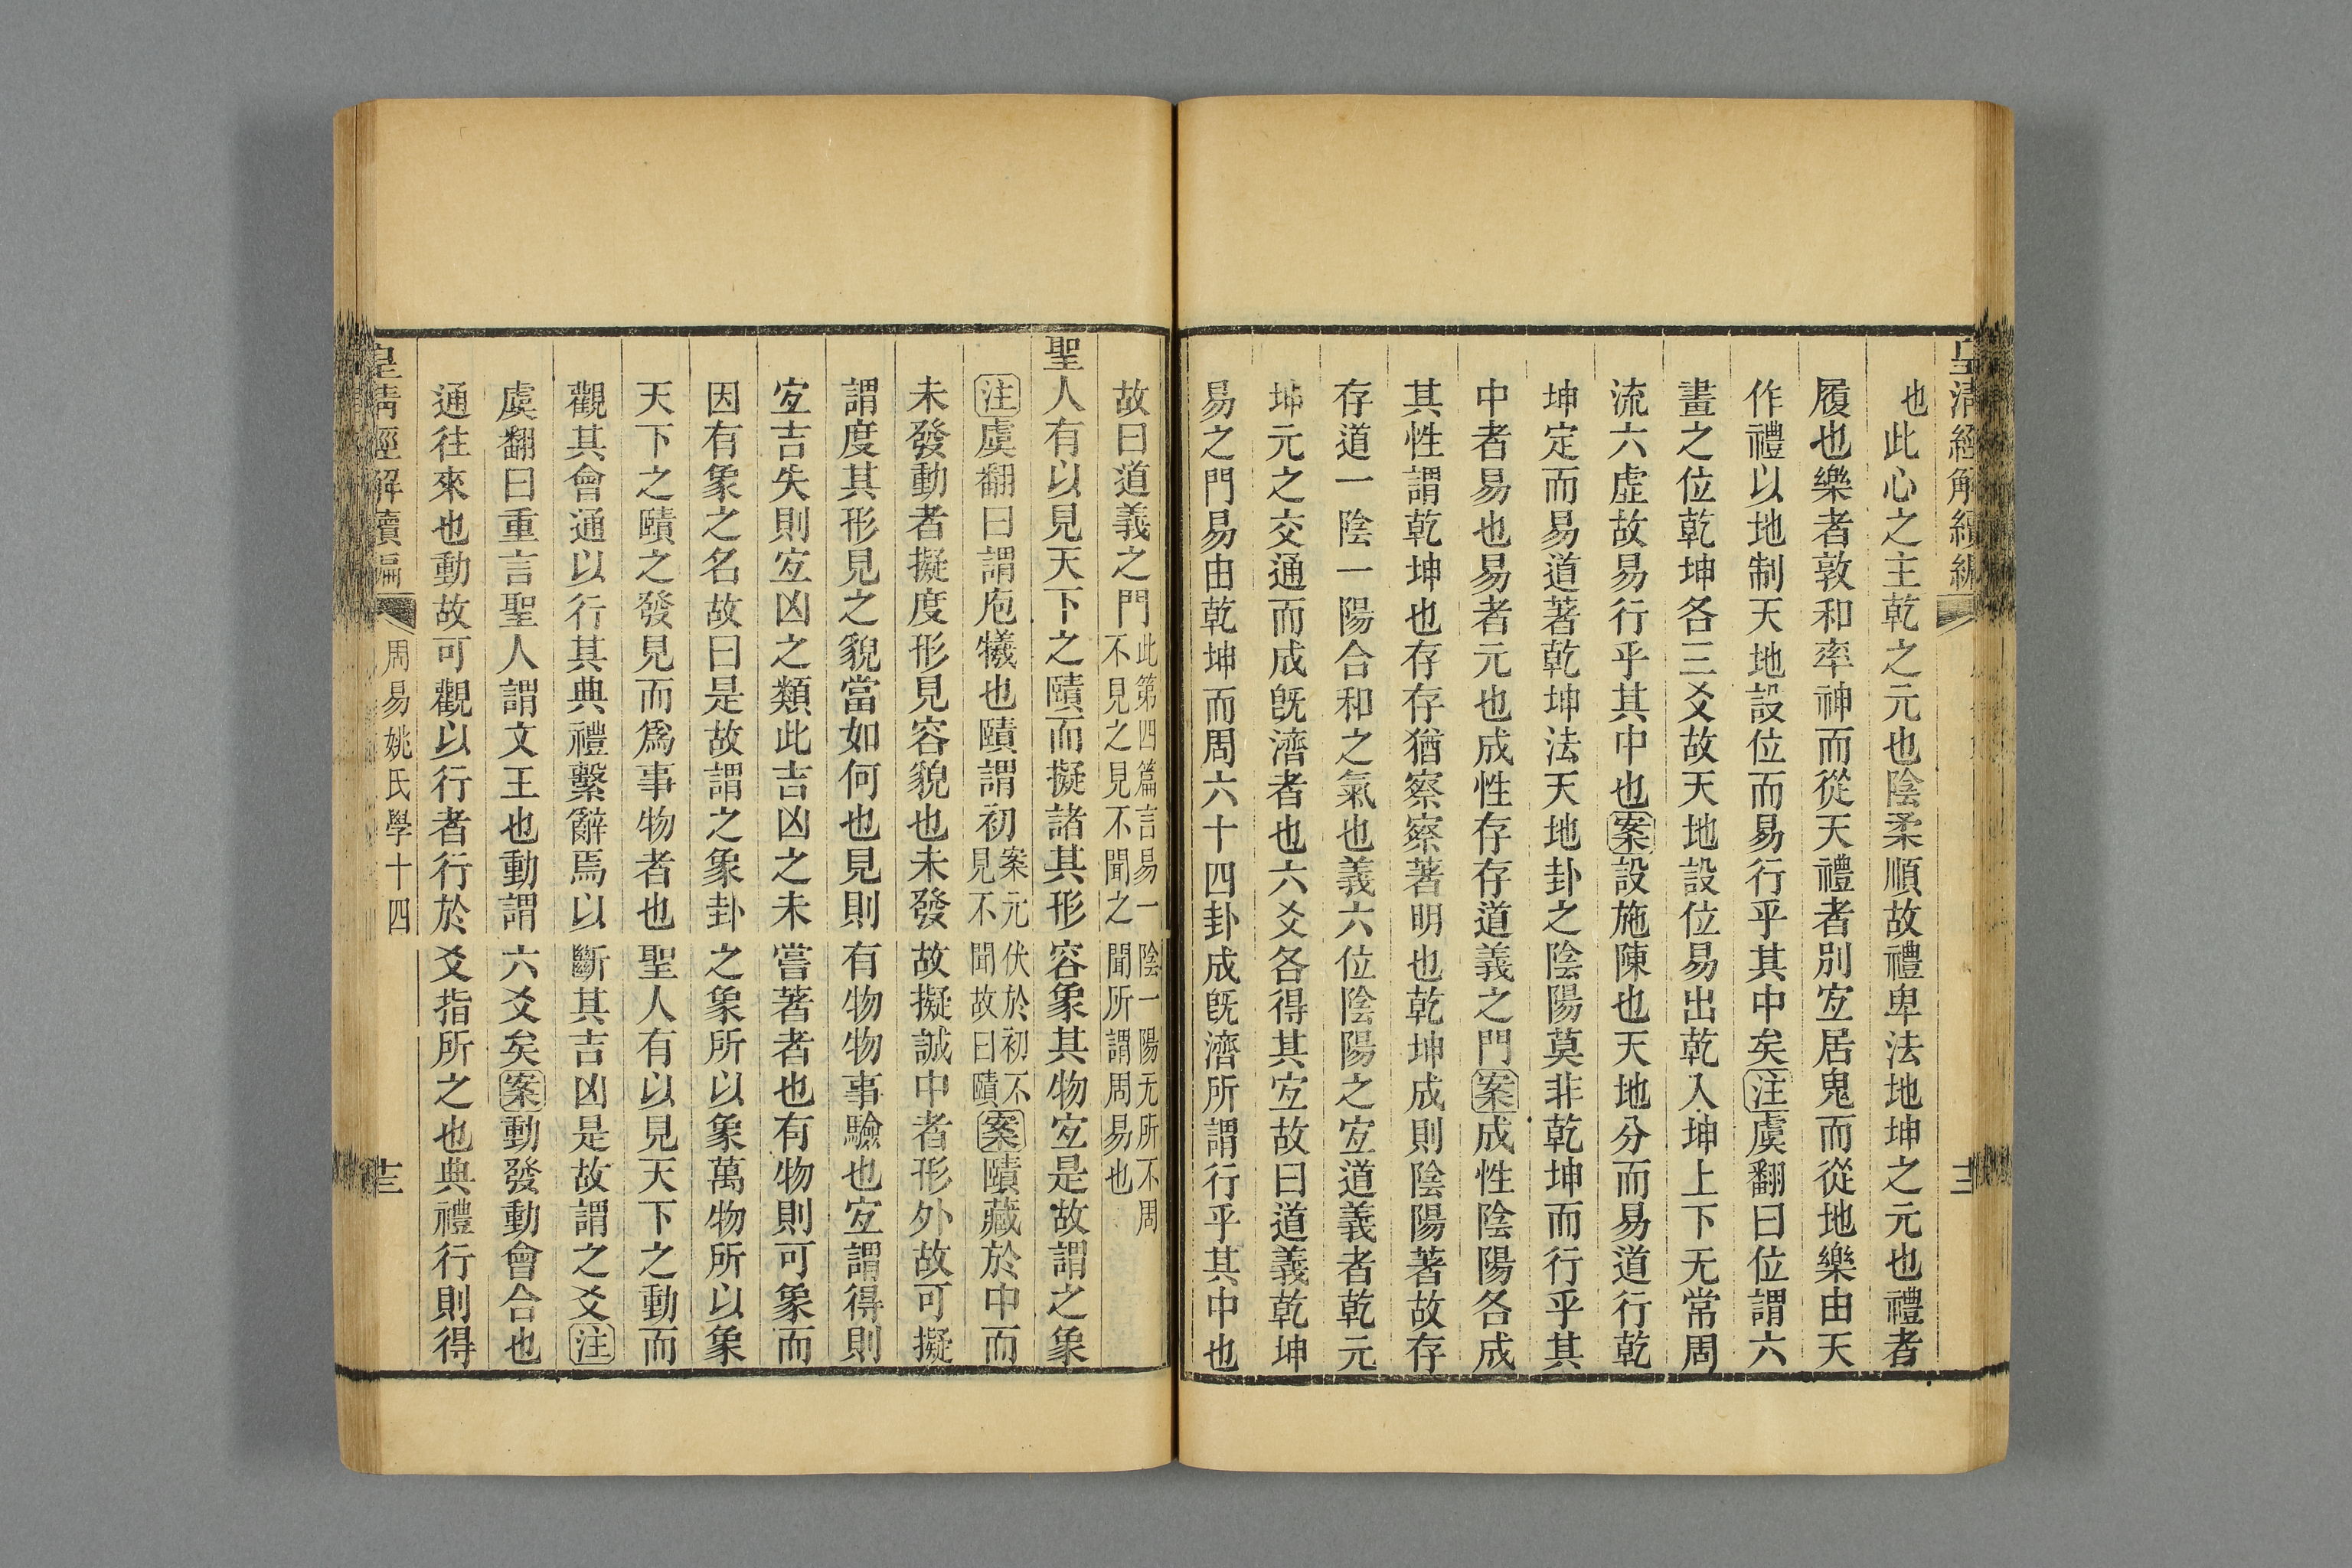 皇清經解續編
十二
也此心之主乾之元也陰柔順故禮卑法地坤之元也禮者
履也樂者敦和率神而從天禮者別宐居鬼而從地樂由天
作禮以地制天地設位而易行乎其中矣注虞翻曰位謂六
畫之位乾坤各三爻故天地設位易出乾入坤上下无常周
流六虛故易行乎其中也案設施陳也天地分而易道行乾
坤定而易道著乾坤法天地卦之陰陽莫非乾坤而行乎其
中者易也易者元也成性存存道義之門案成性陰陽各成
其性謂乾坤也存存猶察察著明也乾坤成則陰陽著故存
存道一陰一陽合和之氣也義六位陰陽之宐道義者乾元
坤元之交通而成旣濟者也六爻各得其宐故曰道義乾坤
易之門易由乾坤而周六十四卦成旣濟所謂行乎其中也
故曰道義之門此第四篇言易一陰一陽无所不周
不見之見不聞之聞所謂周易也
聖人有以見天下之賾而擬諸其形容象其物宐是故謂之象
注虞翻曰謂庖犧也賾謂初案元伏於初不
見不聞故曰賾案賾藏於中而
未發動者擬度形見容貌也未發故擬誠中者形外故可擬
謂度其形見之貌當如何也見則有物物事驗也宐謂得則
宐吉失則宐凶之類此吉凶之未嘗著者也有物則可象而
因有象之名故曰是故謂之象卦之象所以象萬物所以象
天下之賾之發見而爲事物者也聖人有以見天下之動而
觀其會通以行其典禮繫辭焉以斷其吉凶是故謂之爻注
虞翻曰重言聖人謂文王也動謂六爻矣案動發動會合也
通往來也動故可觀以行者行於爻指所之也典禮行則得
皇清經解續編
周易姚氏學十四
十三